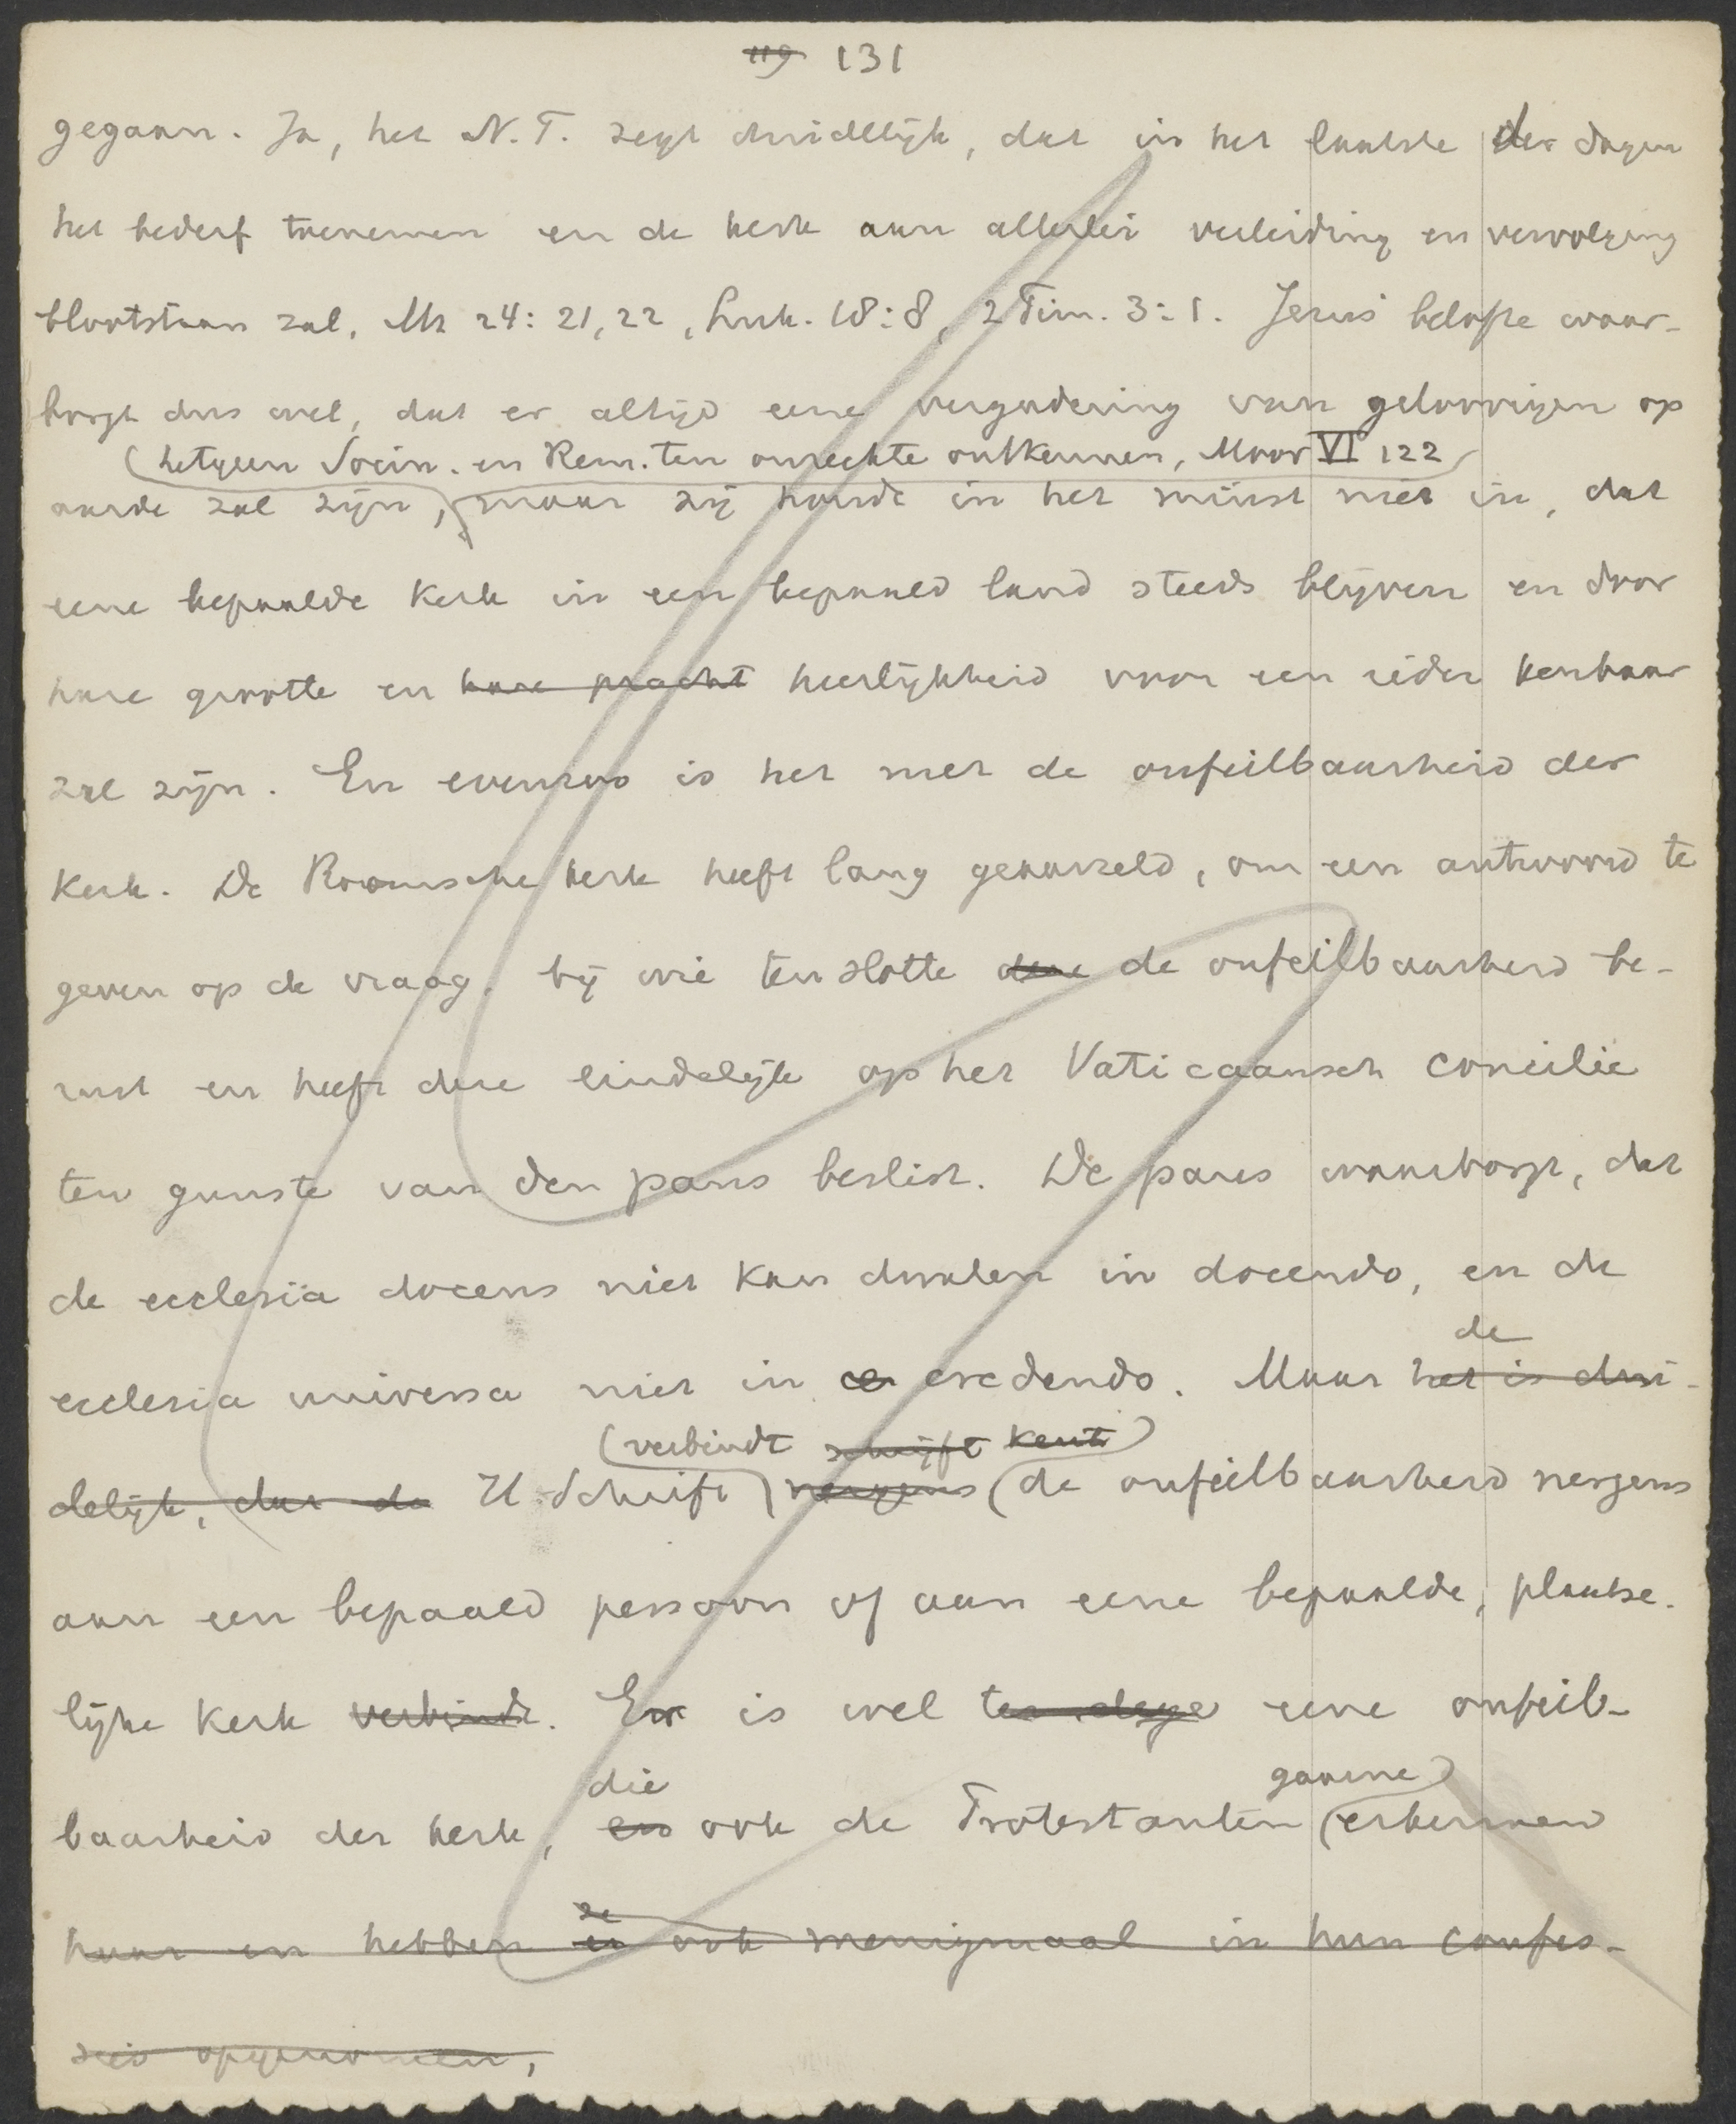 119 131
gegaan. Ja, het N.T. zegt duidelijk, dat in het laatste der dagen
het bederf toenemen en de kerk aan allerlei verleiding en vervolging
blootstaan zal, Mt 24:21,22, Luk. 18:8, 2 Tim. 3:1. Jezus' belofte waar-
borgt dus wel, dat er altijd eene vergadering van geloovigen op
(hetgeen Socin. en Rem. ten onrechte ontkennen, Moor VI 122
aarde zal zijn, maar zij houdt in het minst niet in, dat
eene bepaalde kerk in een bepaald land steeds blijven en door
hare grootte en hare pracht heerlijkheid voor een ieder kenbaar
zal zijn. En evenzoo is het met de onfeilbaarheid der
kerk. De Roomsche kerk heeft lang geaarzeld, om een antwoord te
geven op de vraag, bij wie ten slotte deze de onfeilbaarheid be-
rust en heeft deze eindelijk op het Vaticaansch concilie
ten gunste van den paus beslist. De paus waarborgt, dat
de ecclesia docens niet kan dwalen in docendo, en de
de
ecclesia universa niet in ce credendo. Maar het is dui-
(verbindt schrijft kent)
delijk, dat de H. Schrift nergens (de onfeilbaarheid nergens
aan een bepaald persoon of aan eene bepaalde, plaatse-
lijke kerk verbindt. Er is wel ter dege eene onfeil-
die gaarne)
baarheid der kerk, en ook de Protestanten (erkennen
ze
haar en hebben er ook menigmaal in hun confes-
sie opgenomen,